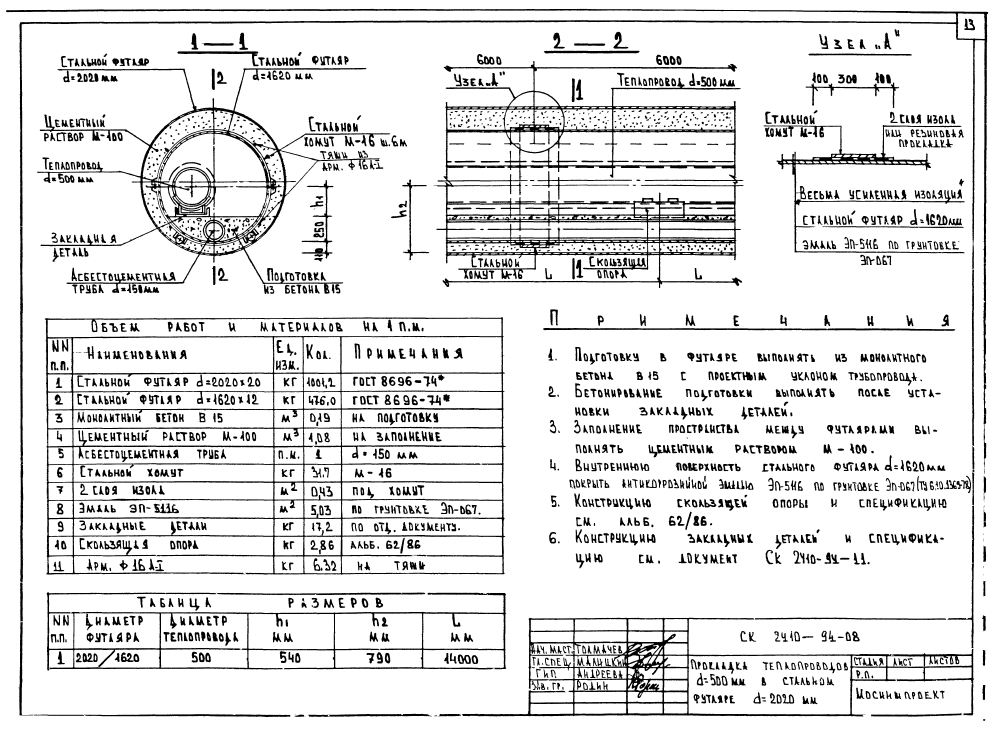 13
1 — 1
Стальной футляр
d=2020 мм
Стальной футляр
d=1620 мм
2
Цементный
раствор М-100
Теплопровод
d=500 мм
Стальной
хомут М-16 ш.6м
тяши из
арм. ф 16 А-I
h1
250
110
Закладная
деталь
Асбестоцементная
труба d=150мм
2
Подготовка
из бетона В15
2 — 2
6000
6000
Узел "А"
1
Теплопровод d=500 мм
h2
Стальной
хомут М-16
L
1
Скользящая
опора
L
Узел "А"
100 300 100
Стальной
хомут М-16
2 слоя изола
или резиновая
прокладка
"Весьма усиленная изоляция"
стальной футляр d=1620мм
эмаль ЭП-5116 по грунтовке
ЭП-067
Объем работ и материалов на 1 п.м.
NN п.п. Наименования Ед. изм. Кол. Примечания
1 Стальной футляр d=2020х20 кг 1001,2 ГОСТ 8696-74*
2 Стальной футляр d=1620х12 кг 476,0 ГОСТ 8696-74*
3 Монолитный бетон В 15 м3 0,19 на подготовку
4 Цементный раствор М-100 м3 1,08 на заполнение
5 Асбестоцементная труба п.м. 1 d=150 мм
6 Стальной хомут кг 31,7 М-16
7 2 слоя изола м2 0,43 под хомут
8 Эмаль ЭП-5116 м2 5,03 по грунтовке ЭП-067.
9 Закладные детали кг 17,2 по отд. документу.
10 Скользящая опора кг 2,86 альб. 62/86
11 Арм. ф 16 А-I кг 6.32 на тяши
Таблица размеров
NN п.п. Диаметр футляра Диаметр теплопровода h1 мм h2 мм L мм
1 2020/1620 500 540 790 14000
Примечания
1. Подготовку в футляре выполнять из монолитного
бетона В 15 с проектным уклоном трубопровода.
2. Бетонирование подготовки выполнять после уста-
новки закладных деталей.
3. Заполнение пространства между футлярами вы-
полнять цементным раствором М-100.
4. Внутреннюю поверхность стального футляра d=1620мм
покрыть антикоррозийной эмалью ЭП-5116 по грунтовке ЭП-067
5. Конструкцию скользящей опоры и спецификацию
см. альб. 62/86.
6. Конструкцию закладных деталей и специфика-
цию см. документ СК 2410-94-11.
СК 2410-94-08
Нач. маст. Толмачев
Гл. спец. Малицкий
ГИП Андреева
Зав. гр. Родин
Прокладка теплопроводов
d=500 мм в стальном
футляре d=2020 мм
Стадия Лист Листов
Р.П.
Мосинжпроект